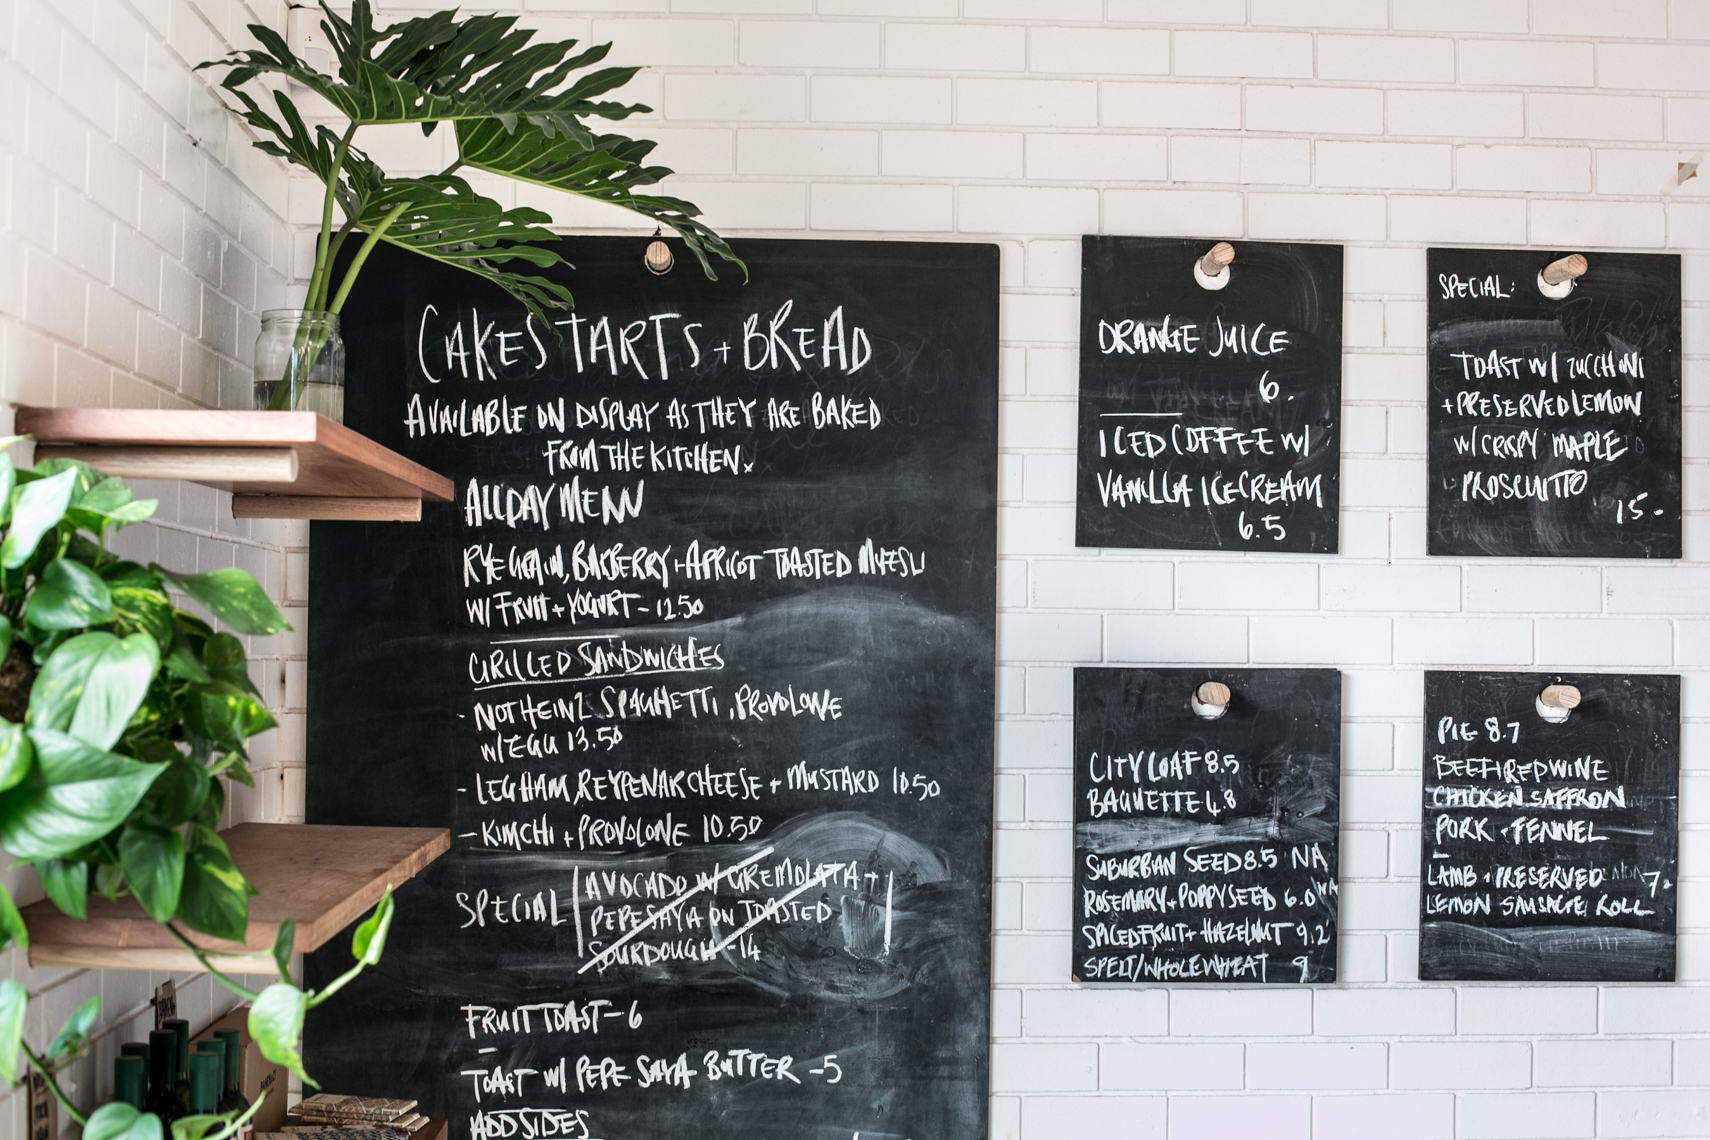 CAKES TARTS + BREAD
AVAILABLE ON DISPLAY AS THEY ARE BAKED
FROM THE KITCHEN x
ALL DAY MENU
RYE GRAIN, BARBERRY + APRICOT TOASTED MUESLI
W/ FRUIT + YOGURT - 12.50
GRILLED SANDWICHES
- NOT HEINZ SPAGHETTI, PROVOLONE
W/ EGG 13.50
- LEG HAM, REYPENAR CHEESE + MUSTARD 10.50
- KIMCHI + PROVOLONE 10.50
SPECIAL
AVOCADO W/ GREMOLATA +
PEPE SAYA ON TOASTED
SOURDOUGH - 14
FRUIT TOAST - 6
TOAST W/ PEPE SAYA BUTTER - 5
ADD SIDES
ORANGE JUICE
6.
ICED COFFEE W/
VANILLA ICECREAM
6.5
SPECIAL:
TOAST W/ ZUCCHINI
+ PRESERVED LEMON
W/ CRISPY MAPLE
PROSCIUTTO
15-
CITY LOAF 8.5
BAGUETTE 4.8
SUBURBAN SEED 8.5 NA
ROSEMARY + POPPYSEED 6.0 NA
SPICED FRUIT + HAZELNUT 9.2
SPELT/WHOLEWHEAT 9
PIE 8.7
BEEF + REDWINE
CHICKEN SAFFRON
PORK + FENNEL
LAMB + PRESERVED 7.
LEMON SAUSAGE ROLL